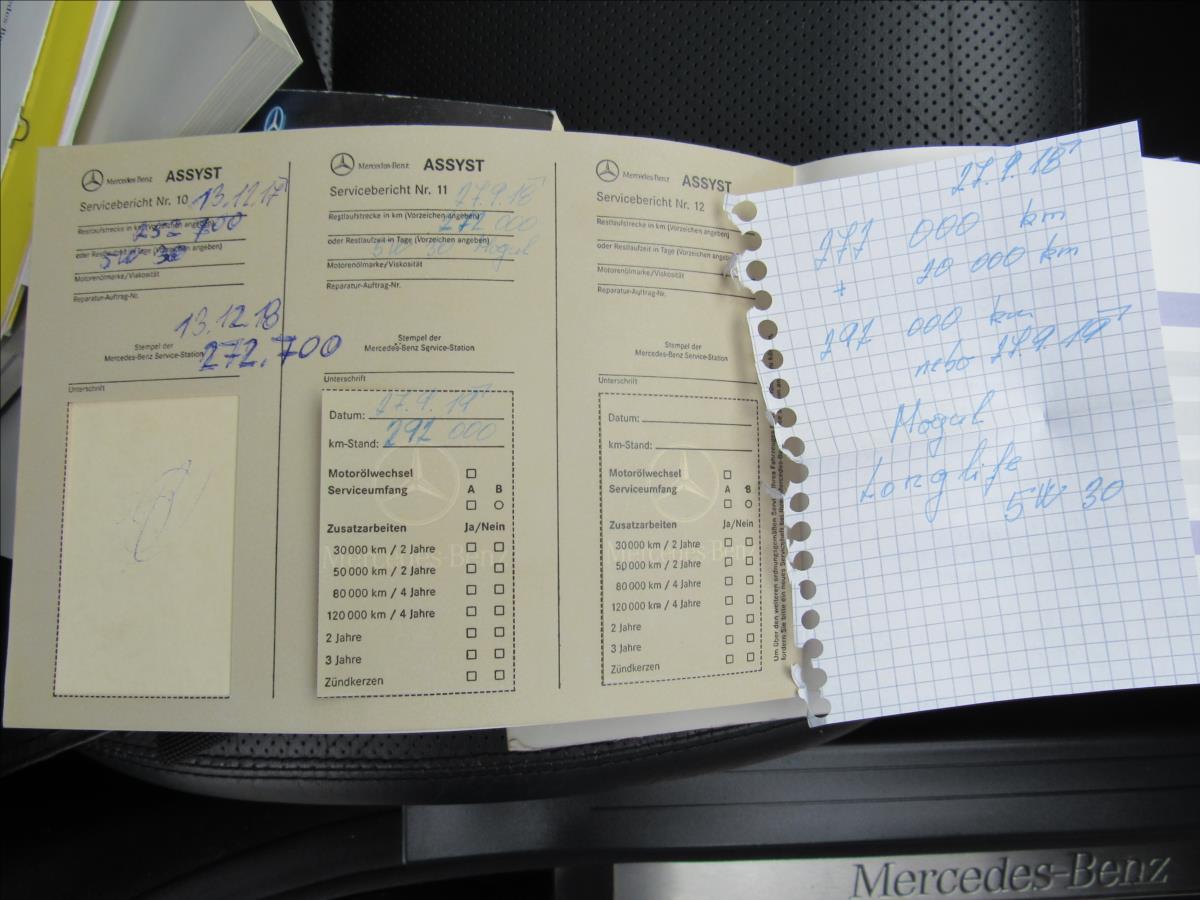 Mercedes-Benz ASSYST
Servicebericht Nr. 10 13.12.17
Restlaufstrecke in km (Vorzeichen angeben)
252 700
oder Restlaufzeit in Tage (Vorzeichen angeben)
5W 30
Motorenölmarke/Viskosität
Reparatur-Auftrag-Nr.
13.12.18
Stempel der
Mercedes-Benz Service-Station
272.700
Unterschrift
Mercedes-Benz ASSYST
Servicebericht Nr. 11 27.9.18
Restlaufstrecke in km (Vorzeichen angeben)
272 000
oder Restlaufzeit in Tage (Vorzeichen angeben)
5W 30 Mogul
Motorenölmarke/Viskosität
Reparatur-Auftrag-Nr.
Stempel der
Mercedes-Benz Service-Station
Unterschrift
Datum: 27.9.19
km-Stand: 292 000
Motorölwechsel
Serviceumfang A B
Zusatzarbeiten Ja/Nein
30000 km / 2 Jahre
50000 km / 2 Jahre
80000 km / 4 Jahre
120000 km / 4 Jahre
2 Jahre
3 Jahre
Zündkerzen
Mercedes-Benz
Mercedes-Benz ASSYST
Servicebericht Nr. 12
Restlaufstrecke in km (Vorzeichen angeben)
oder Restlaufzeit in Tage (Vorzeichen angeben)
Motorenölmarke/Viskosität
Reparatur-Auftrag-Nr.
Stempel der
Mercedes-Benz Service-Station
Unterschrift
Datum:
km-Stand:
Motorölwechsel
Serviceumfang A B
Zusatzarbeiten Ja/Nein
30000 km / 2 Jahre
50000 km / 2 Jahre
80000 km / 4 Jahre
120000 km / 4 Jahre
2 Jahre
3 Jahre
Zündkerzen
27.9.18
277 000 km
+ 20 000 km
297 000 km
nebo 27.9.19
Mogul
Longlife
5W 30
Mercedes-Benz